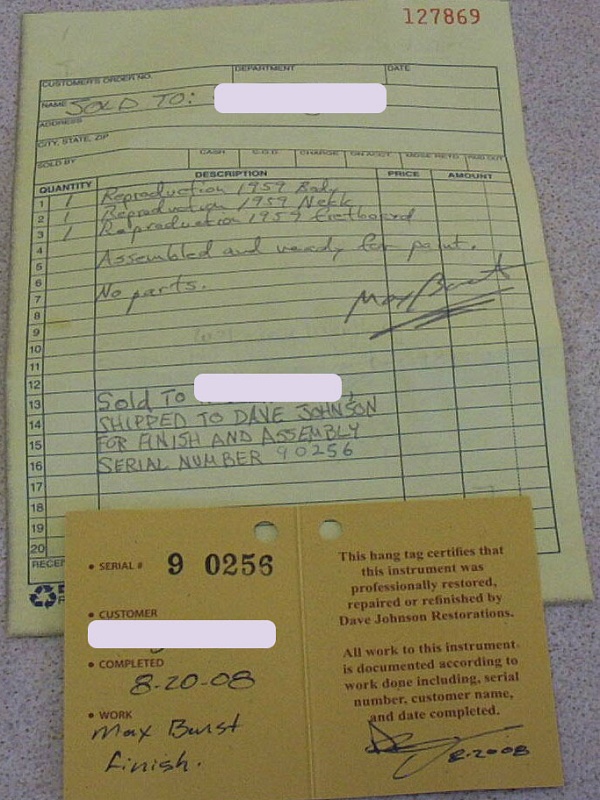 127869
CUSTOMER'S ORDER NO. DEPARTMENT DATE
NAME SOLD TO:
ADDRESS
CITY, STATE, ZIP
SOLD BY CASH C.O.D. CHARGE ON ACCT. MDSE RETD PAID OUT
QUANTITY DESCRIPTION PRICE AMOUNT
1 1 Reproduction 1959 Body
2 1 Reproduction 1959 Neck
3 1 Reproduction 1959 fretboard
4
5 Assembled and ready for paint.
6
7 No parts.
8
9
10
11
12
13 Sold To
14 SHIPPED TO DAVE JOHNSON
15 FOR FINISH AND ASSEMBLY
16 SERIAL NUMBER 90256
17
18
19
20
• SERIAL # 9 0256
• CUSTOMER
• COMPLETED
8-20-08
• WORK
Max Burst
finish.
This hang tag certifies that
this instrument was
professionally restored,
repaired or refinished by
Dave Johnson Restorations.
All work to this instrument
is documented according to
work done including, serial
number, customer name,
and date completed.
8-20-08